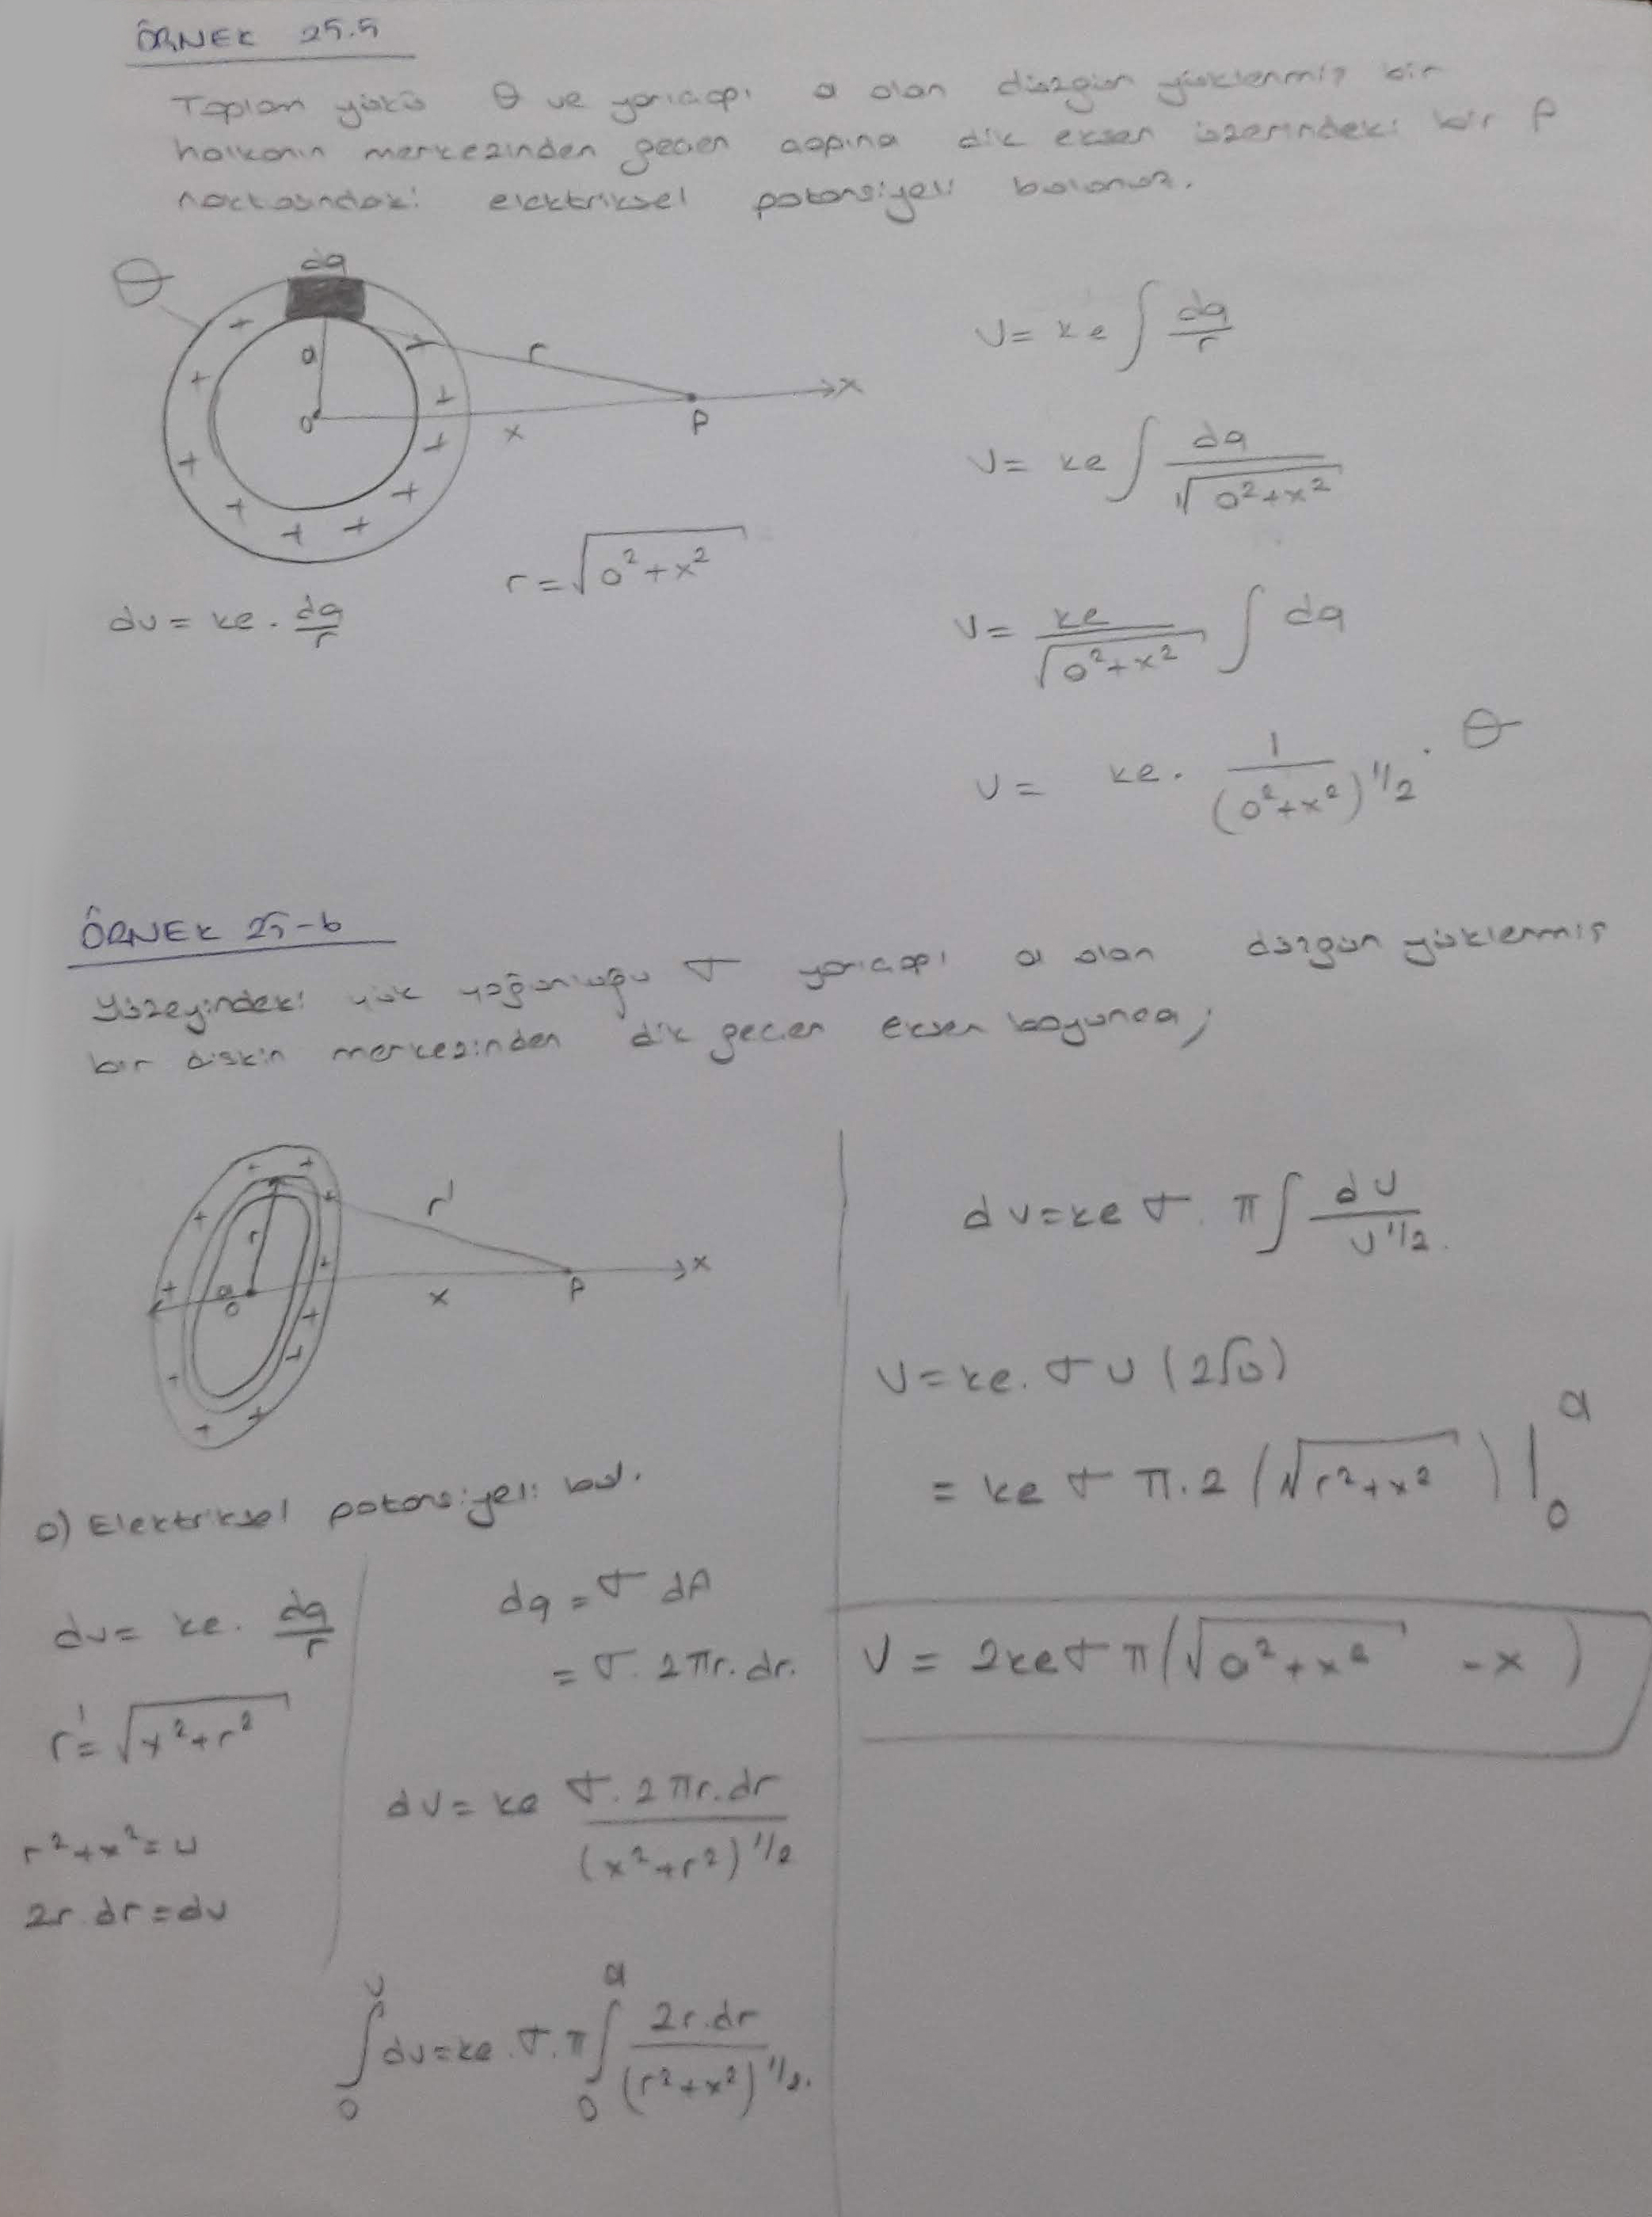 ÖRNEK 25.5
Toplam yükü Q ve yarıçapı a olan düzgün yüklenmiş bir
halkanın merkezinden geçen çapına dik eksen üzerindeki bir P
noktasındaki elektriksel potansiyeli bulunuz.
Q
dq
a
r
O
x
P
x
+ + + + + + + + + + +
r = √(a² + x²)
dv = ke . dq/r
V = ke ∫ dq/r
V = ke ∫ dq/√(a² + x²)
V = ke/√(a² + x²) ∫ dq
V = ke . 1/(a² + x²)^1/2 . Q
ÖRNEK 25-6
Yüzeyindeki yük yoğunluğu σ yarıçapı a olan düzgün yüklenmiş
bir diskin merkezinden dik geçen eksen boyunca;
r'
r
a
O
x
P
x
+ + + + + + + + + + +
a) Elektriksel potansiyeli bul.
dv = ke . dq/r
r' = √(x² + r²)
r² + x² = u
2r dr = du
dq = σ dA
= σ . 2πr . dr.
dV = ke σ . 2πr . dr/(x² + r²)^1/2
∫₀^V dv = ke . σ . π ∫₀^a 2r . dr/(r² + x²)^1/2.
dv = ke σ . π ∫ dU/U^1/2.
V = ke . σ U (2√U)
= ke σ π . 2 (√(r² + x²)) |₀^a
V = 2ke σ π (√(a² + x²) - x)